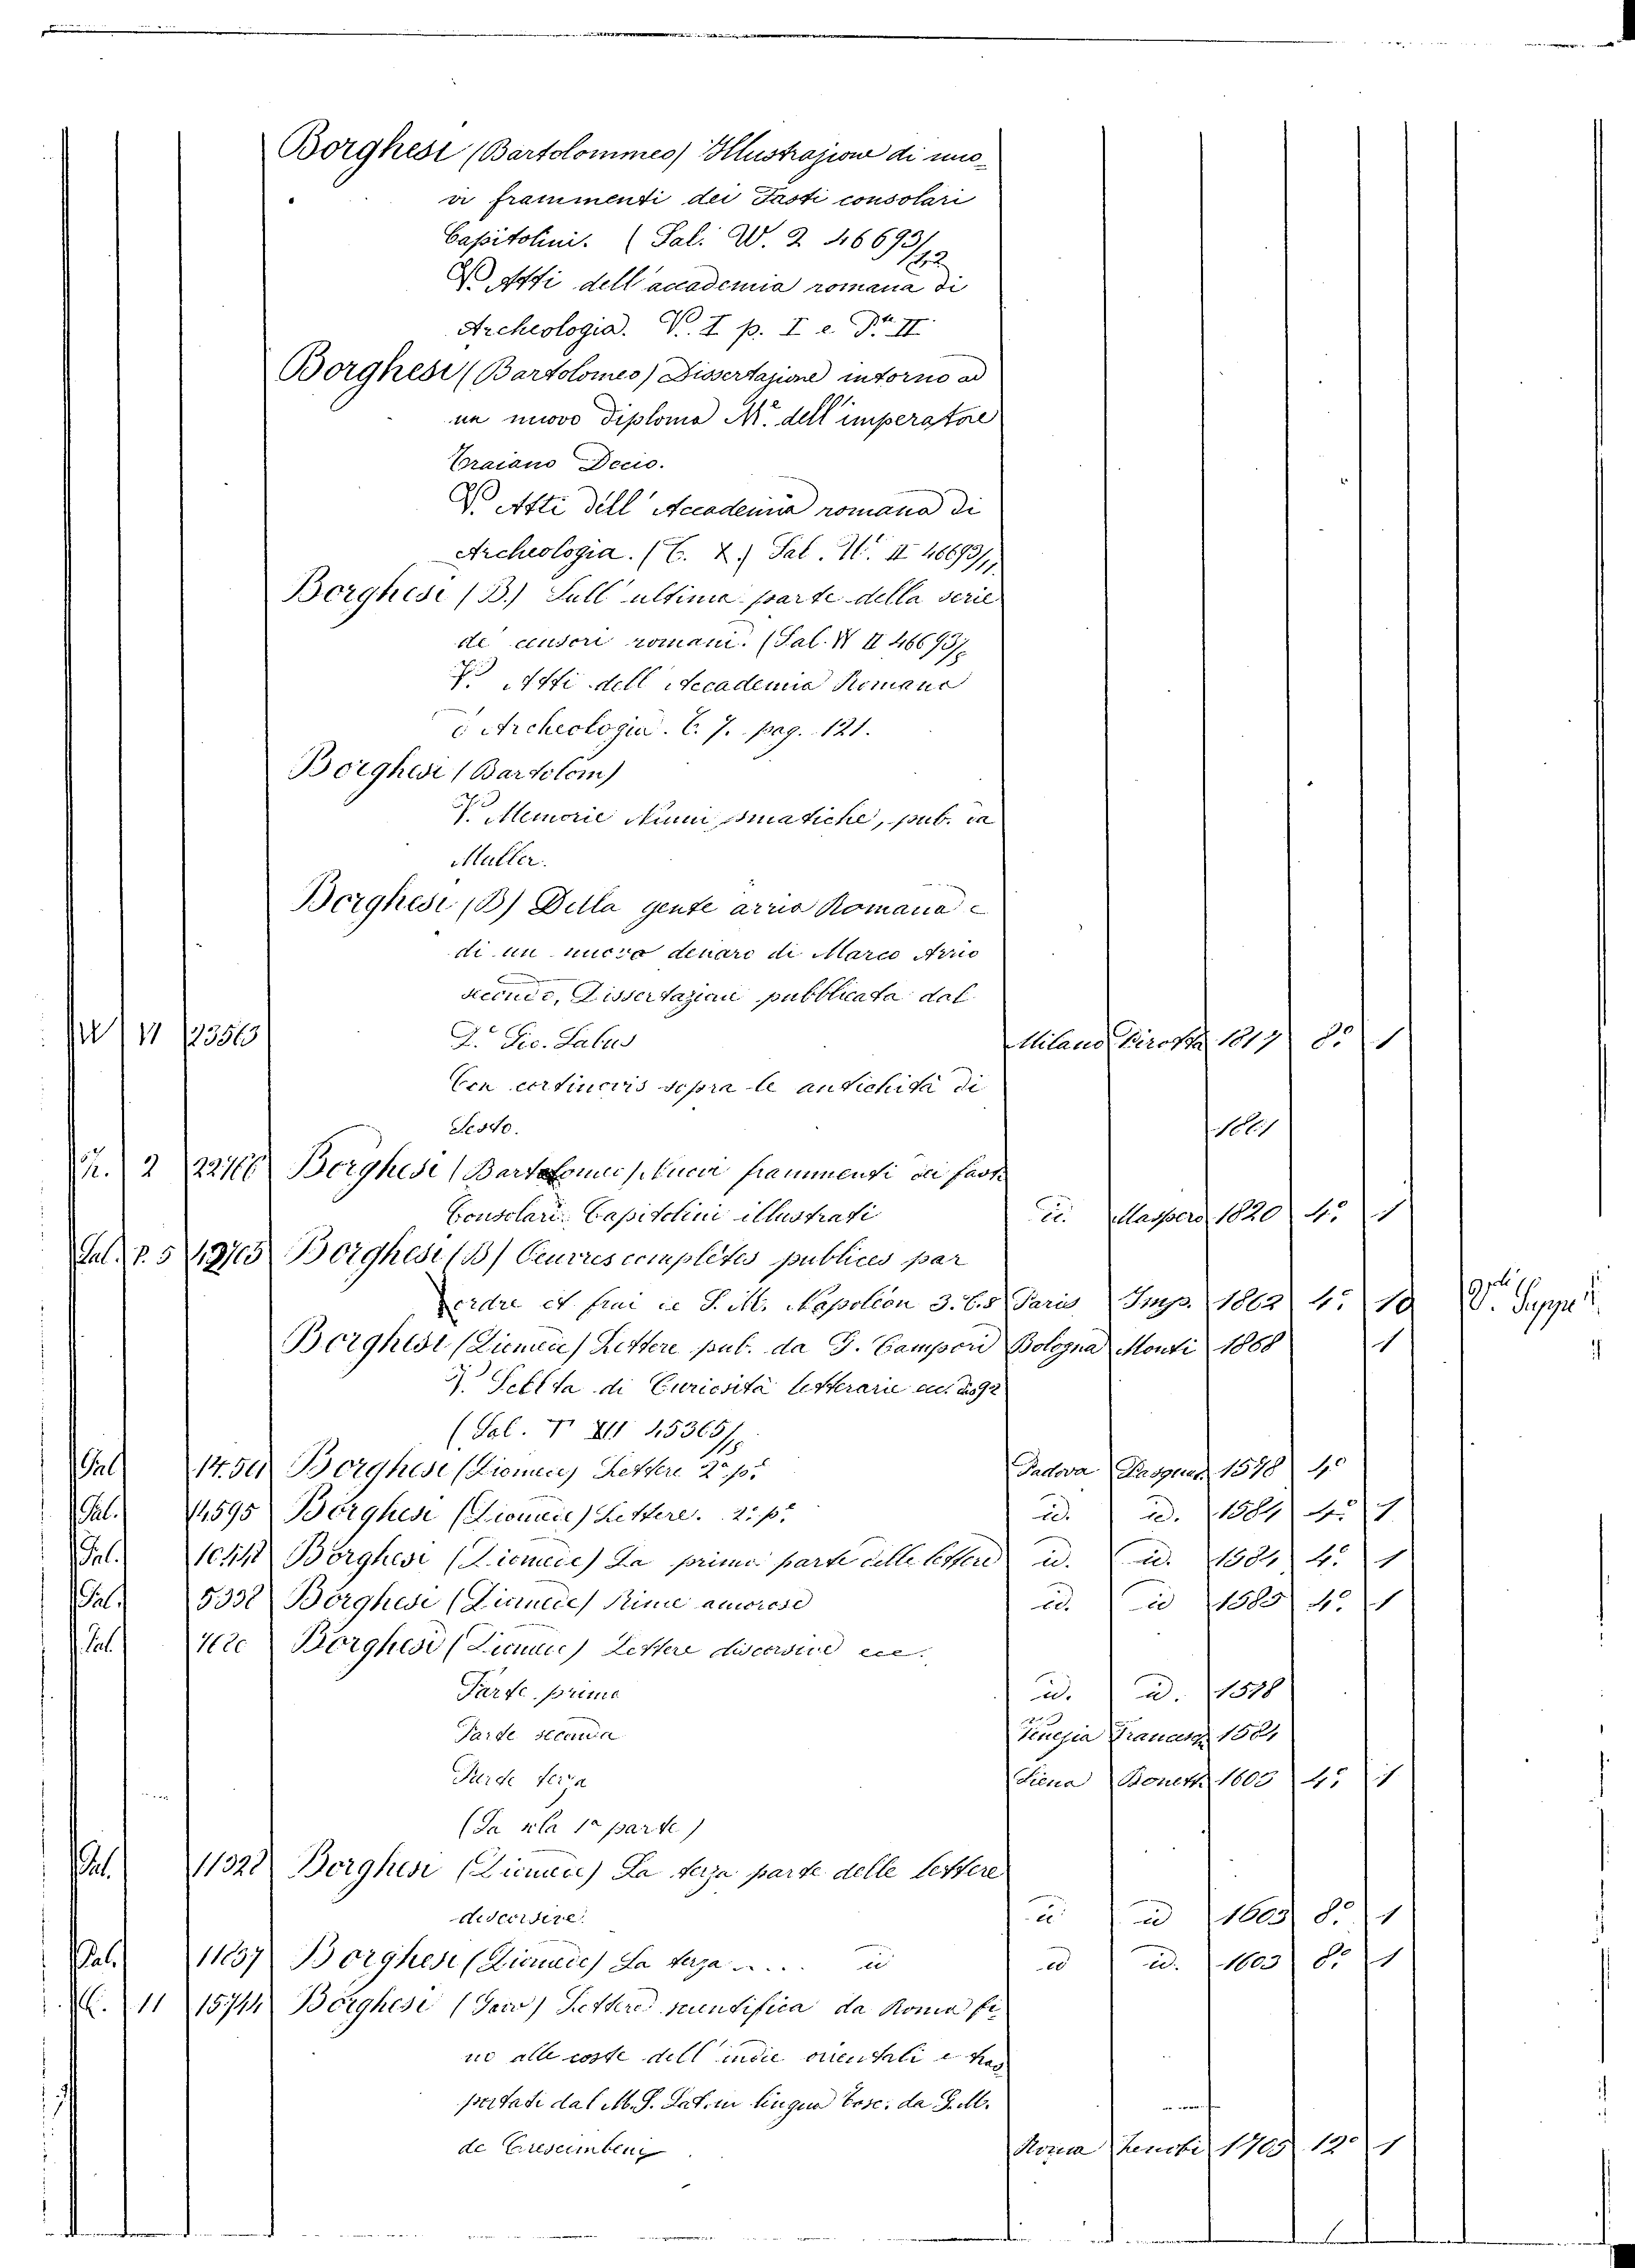 Borghesi (Bartolommeo) Illustrazione di nuo-
vi frammenti dei Fasti consolari
Capitolini. (Sal. W. 2 46693/12
V. Atti dell'accademia romana di
Archeologia. V. I p. I e Pte II
Borghesi (Bartolomeo) Dissertazione intorno ad
un nuovo diploma Mre dell'imperatore
Traiano Decio.
V. Atti dell'Accademia romana di
Archeologia. (T. X.) Sal. W. II 46693/11
Borghesi (B.) Sull'ultima parte della serie
de' censori romani. (Sal. W II 46693/
V. Atti dell'Accademia Romana
d'Archeologia. T. 7. pag. 121.
Borghesi (Bartolom)
V. Memorie Numismatiche, pub. da
Müller.
Borghesi (B) Della gente arria Romana e
di un nuovo denaro di Marco Arrio
secondo, Dissertazione pubblicata dal
W 11 23563 Dr Gio. Labus Milano Pirotta 1817 8° 1
Con continovis sopra le antichità di
Sesto.
2 22766 Borghesi (Bartolomeo) Nuovi frammenti dei fasti
Consolari Capitolini illustrati id. Maspero 1820 4° 1
Sal. P. 5 49765 Borghesi (B) Oeuvres complètes publiées par
ordre et frai de S. M. Napoléon 3. T. 8 Paris Imp. 1862 4° 10 V. Suppl.
Borghesi (Diomede) Lettere pub. da G. Campori Bologna Monti 1868 1
V. Scelta di Curiosità letterarie
(Sal. V XII 45365/
Sal. Borghesi (Diomede) Lettere 2a pe Padova Pasquat 1578 4°
Sal. 14595 Borghesi (Diomede) Lettere. 2a pe id. id. 1584 4° 1
Sal. Borghesi (Diomede) La prima parte delle lettere id. id. 1584 4° 1
Sal. 5338 Borghesi (Diomede) Rime amorose id. id 1585 4° 1
Sal. Borghesi (Diomede) Lettere discorsive ecc.
Parte prima id. id. 1578
Parte seconda Venezia Francesch 1584
Parte terza Siena Bonetti 1603 4° 1
(Da sola 1a parte)
Sal. 11328 Borghesi (Diomede) La terza parte delle lettere
discorsive. id id 1603 8° 1
Sal. 11837 Borghesi (Diomede) La terza .... id id id. 1603 8° 1
11 15744 Borghesi (Gaio) Lettera scientifica da Roma fi-
no alle coste dell'indie orientali e tras
portati dal M. S. Lat. in lingua tosc. da G. M.
de Crescimbeni Roma Zenobi 1705 12° 1